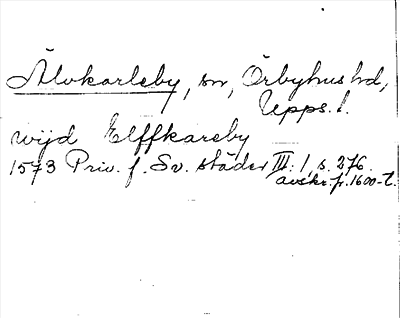 Älvkarleby, sn, Örbyhus hd,
Upps. l.
wijd Elffkareby
1573 Priv. f. Sv. städer III: 1, s. 276.
avskr. fr. 1600-t.